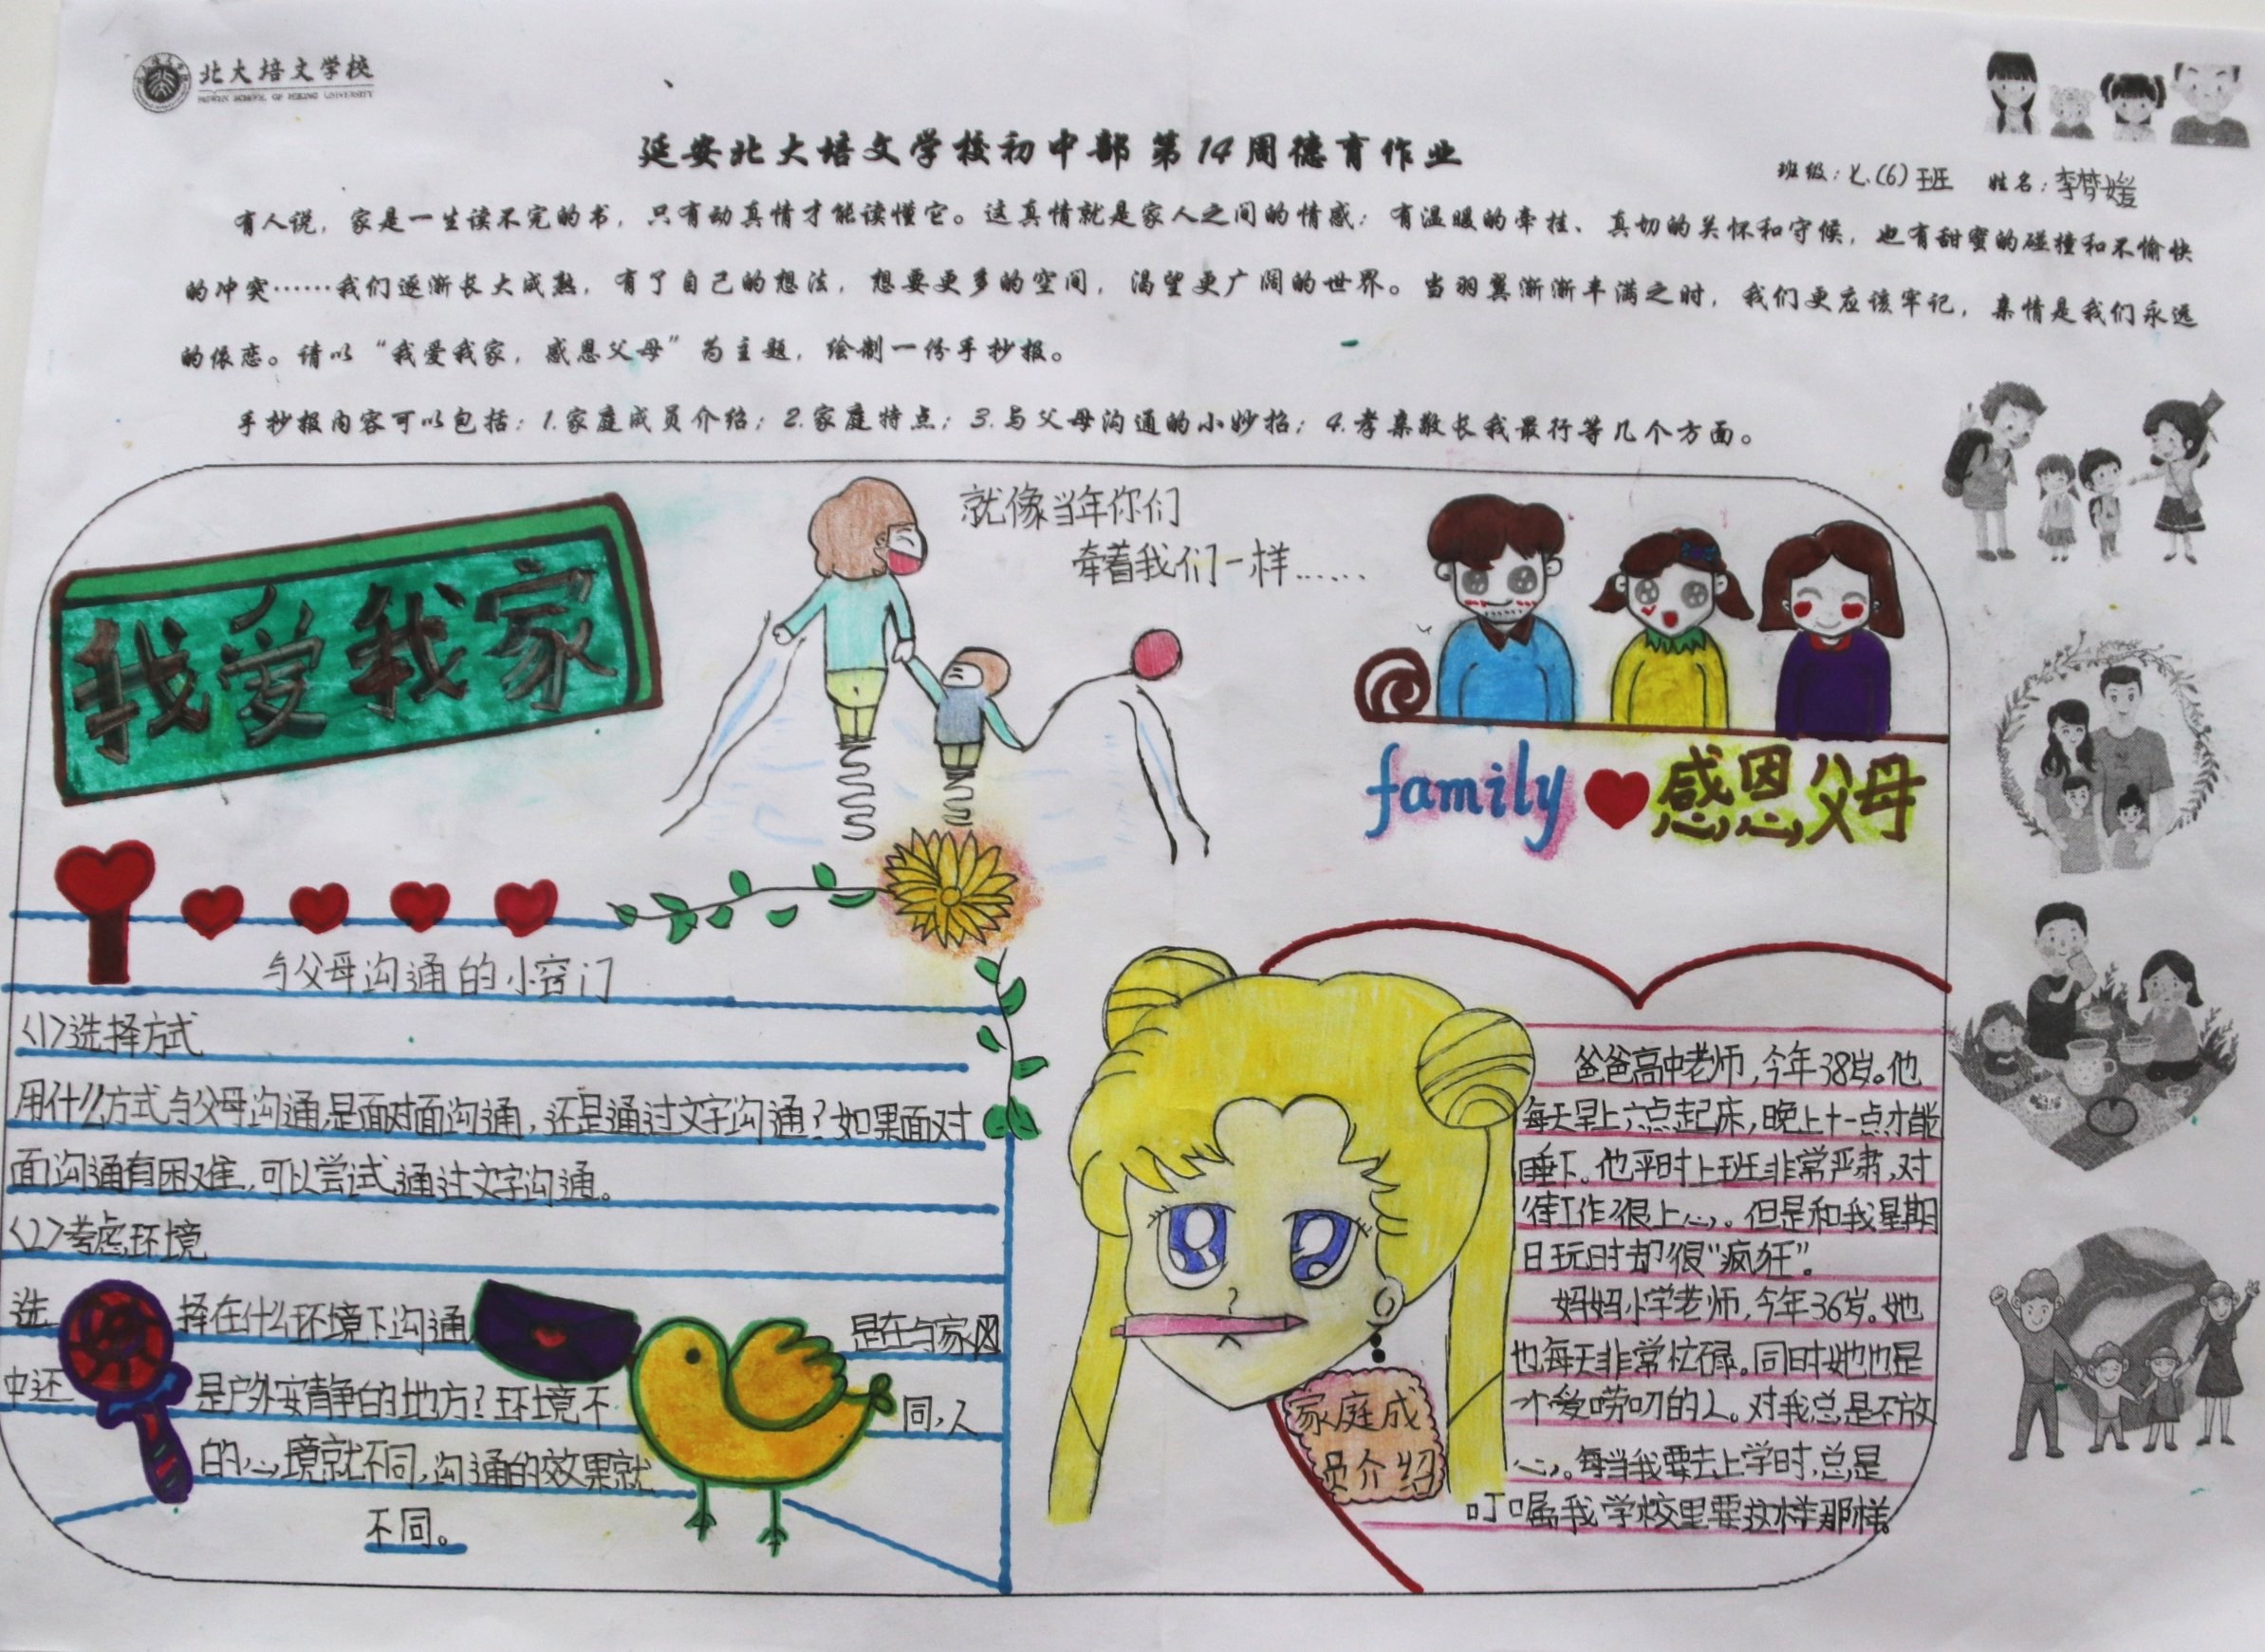 北大培文学校
PEIWEN SCHOOL OF PEKING UNIVERSITY
延安北大培文学校初中部第14周德育作业
班级：七.(6)班 姓名：李梦媛
有人说，家是一生读不完的书，只有动真情才能读懂它。这真情就是家人之间的情感：有温暖的牵挂、真切的关怀和守候，也有甜蜜的碰撞和不愉快
的冲突……我们逐渐长大成熟，有了自己的想法，想要更多的空间，渴望更广阔的世界。当羽翼渐渐丰满之时，我们更应该牢记，亲情是我们永远
的依恋。请以“我爱我家，感恩父母”为主题，绘制一份手抄报。
手抄报内容可以包括：1.家庭成员介绍；2.家庭特点；3.与父母沟通的小妙招；4.孝亲敬长我最行等几个方面。
我爱我家
就像当年你们
牵着我们一样……
family 感恩父母
与父母沟通的小窍门
<1>选择方式
用什么方式与父母沟通,是面对面沟通，还是通过文字沟通？如果面对
面沟通有困难,可以尝试通过文字沟通。
<2>考虑环境
选择在什么环境下沟通是在与家网
中还是户外安静的地方？环境不同,人
的心境就不同,沟通的效果就
不同。
?
家庭成
员介绍
爸爸高中老师,今年38岁。他
每天早上六点起床,晚上十一点才能
睡下。他平时上班非常严肃,对
待工作很上心。但是和我星期
日玩时却很“疯狂”。
妈妈小学老师,今年36岁。她
也每天非常忙碌。同时她也是
个爱唠叨的人。对我总是不放
心。每当我要去上学时,总是
叮嘱我学校里要这样那样。